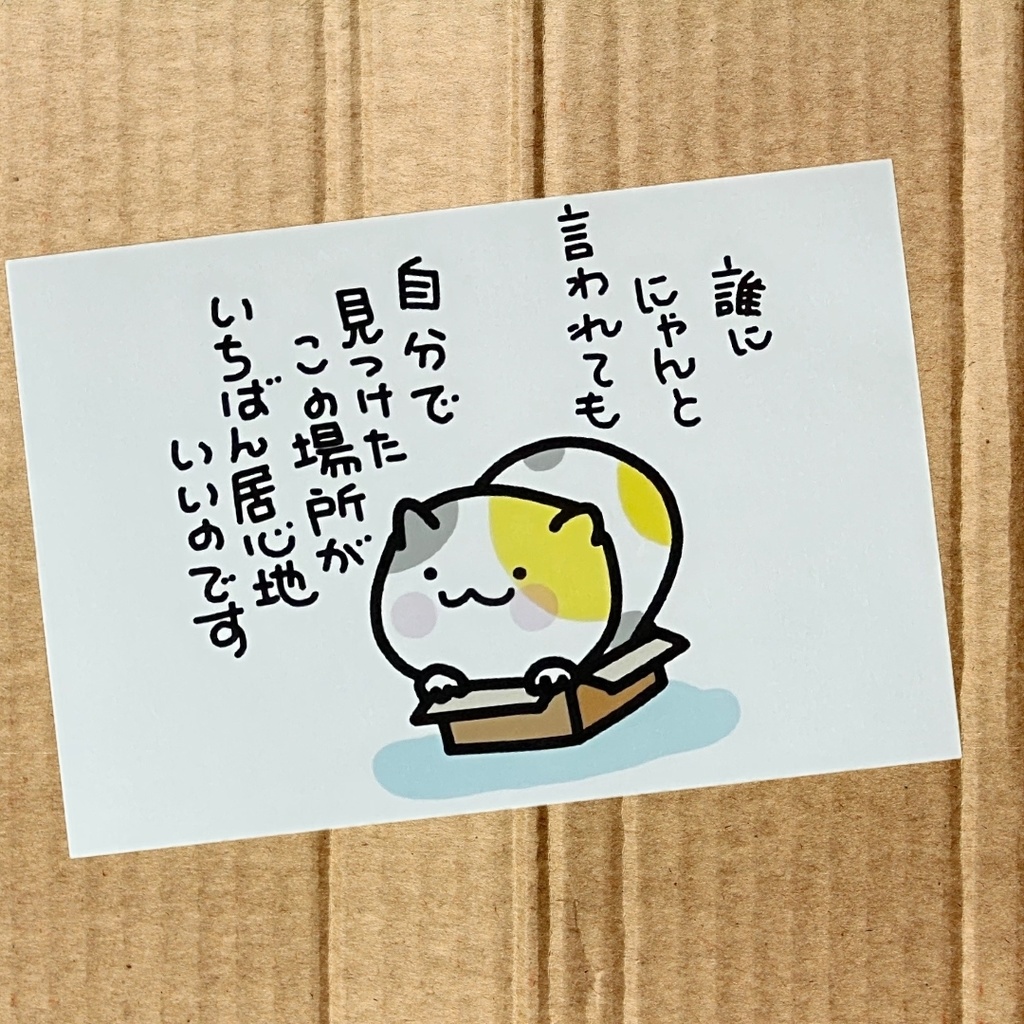 誰に
にゃんと
言われても
自分で
見つけた
この場所が
いちばん居心地
いいのです